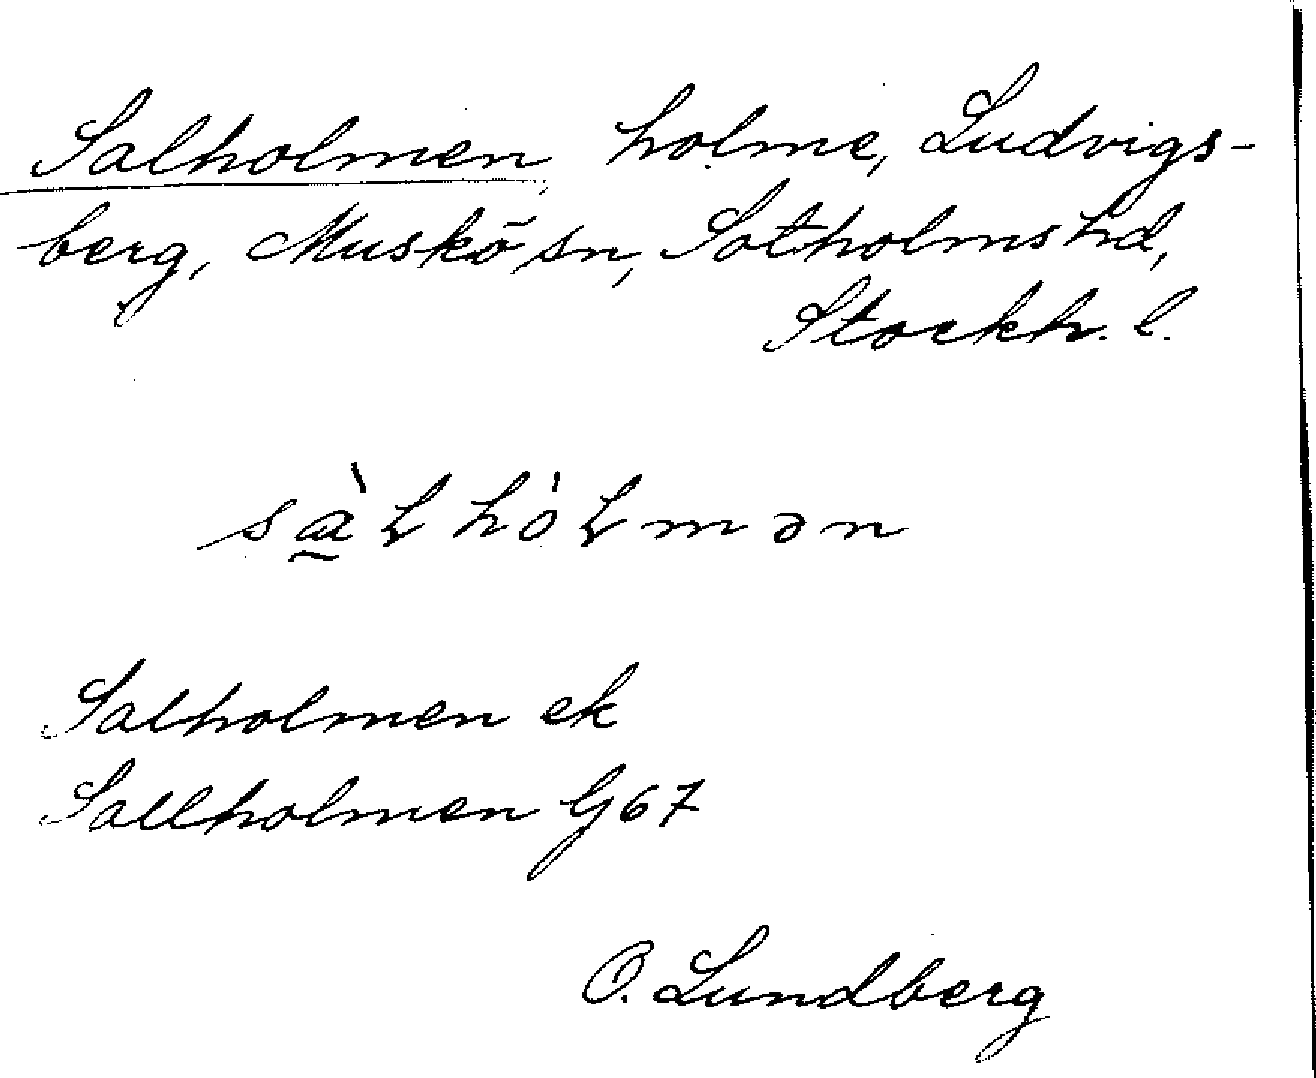 Salholmen, holme, Ludvigs-
berg, Muskö sn, Sotholms hd,
Stockh. l.
sàlhólmən
Salholmen ek
Sallholmen G67
O. Lundberg